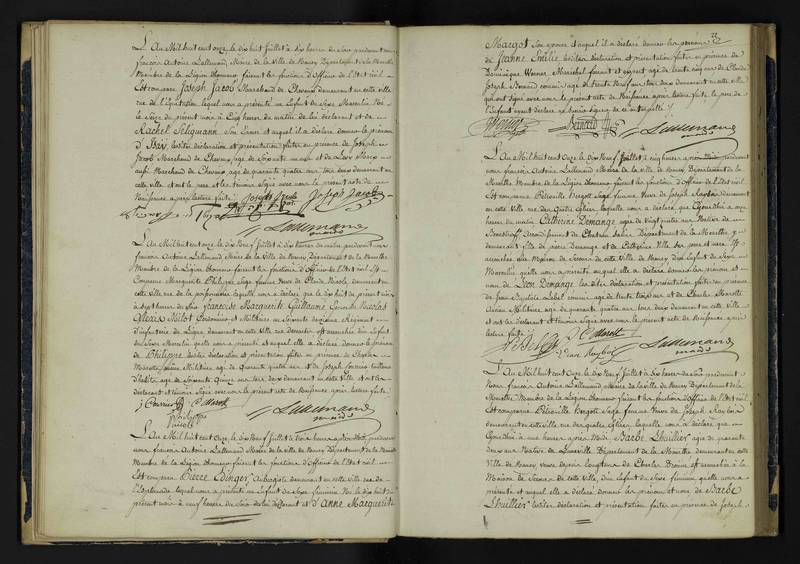 L'An Mil huit cent onze, le dix huit Juillet à dix heures du Soir pardevant nous
françois Antoine Lallemand, Maire de la Ville de Nancy Département de la Meurthe
Membre de la Légion d'honneur faisant les fonctions d'Officier de l'Etat civil
Est comparu Joseph Jacob Marchand de Chevaux demeurant en cette ville
rue de l'Equitation lequel nous a présenté un Enfant du Sexe Masculin Né
le seize du présent mois à Cinq heures du matin de lui déclarant et de
Rachel Seligmann son Epouse et auquel il a déclaré donner le prénom
d' lesdites déclaration et présentation faites en présence de Joseph
Jacob Marchand de Chevaux, agé de soixante et de Levy
aussi Marchand de Chevaux agé de quarante quatre ans tous deux demeurant en
cette ville et ont le père et les témoins signé avec nous le présent acte de
Naissance après lecture faite. Joseph Jacob
Lallemand
maire
L'An Mil huit cent onze le dix Neuf Juillet à dix heures du matin pardevant nous
francois Antoine Lallemand Maire de la Ville de Nancy Département de la Meurthe
Membre de la Légion d'honneur faisant les fonctions d'Officier de l'Etat civil Est
Comparue Marguerite Philippe Sage femme Veuve de Claude Nicole demeurant en
cette ville rue de la laquelle nous a déclaré que le dix huit du présent mois
à sept heures du soir Françoise Marguerite Guillaume Epouse de Nicolas
Alexis Milot Cordonnier et Militaire au Soixante Régiment
d'infanterie de Ligne demeurant en cette Ville est accouchée d'un Enfant
du Sexe Masculin qu'elle nous a présenté et auquel elle a déclaré donner le prénom
de Philippe lesdites déclaration et présentation faites en présence de
Marotte Ancien Militaire agé de quarante quatre ans et de Joseph Courrier
agé de Soixante ans tous deux demeurant en cette Ville et ont les
déclarant et témoins signé avec nous le présent acte de Naissance après lecture faite.
J Courrier C Marott
Philippe
Nicole
Lallemand
maire
L'An Mil huit cent onze le dix Neuf Juillet à trois heures après Midi pardevant
nous françois Antoine Lallemand Maire de la Ville de Nancy Département de la Meurthe
Membre de la Légion d'honneur faisant les fonctions d'Officier de l'Etat civil
Est comparu Pierre Edinger, Aubergiste demeurant en cette Ville rue de
l'Esplanade lequel nous a présenté un Enfant du Sexe féminin Né le dix huit du
présent mois à neuf heures du Soir de lui déclarant et d'Anne Marguerite
Margot son épouse et auquel il a déclaré donner les prénoms
de Jeanne Emilie lesdites déclaration et présentation faites en présence de
Dominique Werner Maréchal ferrant et expert agé de trente cinq ans et de Claude
Joseph Bernard commis agé de trente Neuf ans tous deux demeurant en cette ville
qui ont signé avec nous le présent acte de Naissance après lecture faite, le père de
l'Enfant ayant déclaré ne savoir signer de ce interpellé.
Werner Bernard Lallemand
maire
L'An Mil huit cent Onze le dix Neuf Juillet à cinq heures après Midi pardevant
nous françois Antoine Lallemand Maire de la Ville de Nancy Département de la
Meurthe Membre de la Légion d'honneur faisant les fonctions d'Officier de l'Etat civil
Est comparue Pétronille Hergot Sage femme Veuve de Joseph Raybois demeurant
en cette Ville rue des Quatre Eglises laquelle nous a déclaré que Cejourd'hui à
heures du matin Catherine Demange agée de vingt quatre ans Native de
Arrondissement de Chateau Salins Département de la Meurthe y
demeurant fille de pierre Demange et de Catherine Villa ses père et mère Est
accouchée à la Maison de Secours de cette Ville de Nancy d'un Enfant du Sexe
Masculin qu'elle nous a présenté auquel elle a déclaré donner les prénom et
nom de Léon Demange les dites déclaration et présentation faites en présence
de Jean Baptiste Lebel commis agé de trente trois ans et de Charles Marotte
Ancien Militaire agé de quarante quatre ans tous deux demeurant en cette Ville
et ont les déclarant et témoins signé avec nous le présent acte de Naissance après
lecture faite. JB Lebel C Marott Lallemand
Veuve Raybois maire
L'An Mil huit cent Onze le dix Neuf Juillet à six heures du Soir pardevant
Nous françois Antoine Lallemand Maire de la ville de Nancy Département de la
Meurthe Membre de la Légion d'honneur faisant les fonctions d'Officier de l'Etat civil
Est comparue Pétronille Hergott Sage femme Veuve de Joseph Raybois
demeurant en cette Ville rue des quatre Eglises, laquelle nous a déclaré que
Cejourd'hui à une heure après Midi Barbe Lhuillier agée de quarante
deux ans Native de Lunéville Département de la Meurthe demeurant en cette
Ville de Nancy veuve depuis longtems de Charles est accouchée à la
Maison de Secours de cette Ville, d'un Enfant du Sexe féminin qu'elle nous a
présenté et auquel elle a déclaré donner les prénom et nom de Barbe
Lhuillier lesdites déclaration et présentation faites en présence de Joseph